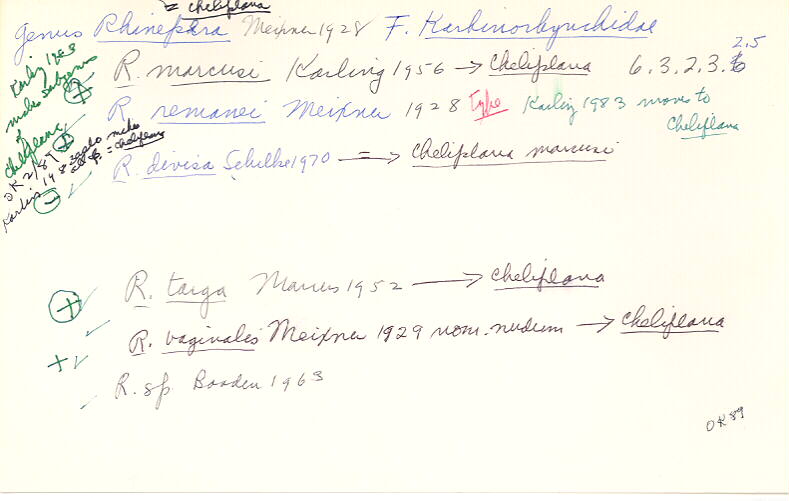 = cheliplana
Genus Rhinepera Meixner 1928 F. Karkinorhynchidae
R. marcusi Karling 1956 → Cheliplana 6.3.2.3.6 2.5
R. remanei Meixner 1928 Type Karling 1983 moves to Cheliplana
R. divisa Schilke 1970 = → Cheliplana marcusi
Karling 1983 makes subgenus of Cheliplana
OK 2/89
R. targa Marcus 1952 → Cheliplana
R. vaginalis Meixner 1929 nom. nudum → Cheliplana
R. sp Boaden 1963
OK 89